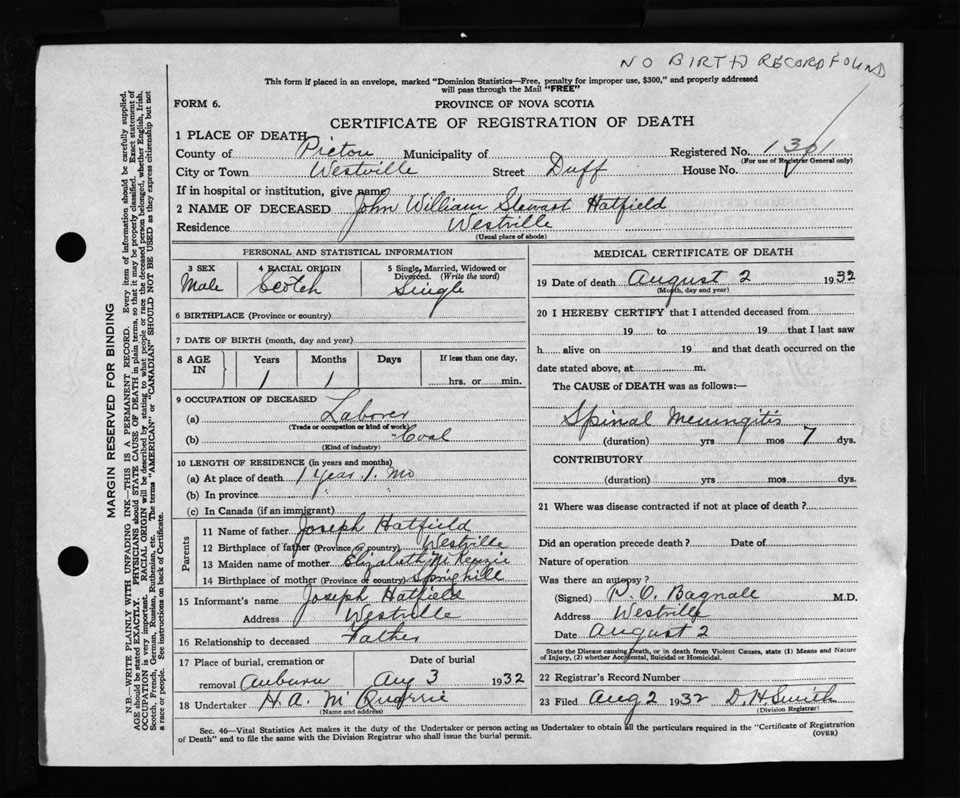 NO BIRTH RECORD FOUND
This form if placed in an envelope, marked "Dominion Statistics—Free, penalty for improper use, $300," and properly addressed
will pass through the Mail "FREE"
FORM 6. PROVINCE OF NOVA SCOTIA
CERTIFICATE OF REGISTRATION OF DEATH
1 PLACE OF DEATH
County of Pictou Municipality of Registered No.
(For use of Registrar General only)
City or Town Westville Street Duff House No.
If in hospital or institution, give name
2 NAME OF DECEASED John William Stewart Hatfield
Residence Westville
(Usual place of abode)
PERSONAL AND STATISTICAL INFORMATION
3 SEX 4 RACIAL ORIGIN 5 Single, Married, Widowed or
Divorced. (Write the word)
Male Scotch Single
6 BIRTHPLACE (Province or country)
7 DATE OF BIRTH (month, day and year)
8 AGE IN Years Months Days If less than one day,
1 1 hrs. or min.
9 OCCUPATION OF DECEASED
(a) Laborer
(Trade or occupation or kind of work)
(b) Coal
(Kind of industry)
10 LENGTH OF RESIDENCE (in years and months)
(a) At place of death 1 Year 1. Mo
(b) In province " "
(c) In Canada (if an immigrant)
Parents
11 Name of father Joseph Hatfield
12 Birthplace of father (Province or country) Westville
13 Maiden name of mother Elizabeth McKenzie
14 Birthplace of mother (Province or country) Springhill
15 Informant's name Joseph Hatfield
Address Westville
16 Relationship to deceased Father
17 Place of burial, cremation or Date of burial
removal Auburn Aug 3 1932
18 Undertaker H. A. McQuarrie
(Name and address)
MEDICAL CERTIFICATE OF DEATH
19 Date of death August 2 1932
(Month, day and year)
20 I HEREBY CERTIFY that I attended deceased from
19 to 19 that I last saw
h alive on 19 and that death occurred on the
date stated above, at m.
The CAUSE of DEATH was as follows:—
Spinal Meningitis
(duration) yrs mos 7 dys.
CONTRIBUTORY
(duration) yrs mos dys.
21 Where was disease contracted if not at place of death?
Did an operation precede death? Date of
Nature of operation
Was there an autopsy?
(Signed) P. O. Bagnall M.D.
Address Westville
Date August 2
State the Disease causing Death, or in death from Violent Causes, state (1) Means and Nature
of Injury, (2) whether Accidental, Suicidal or Homicidal.
22 Registrar's Record Number
23 Filed Aug 2 1932 D. H. Smith
(Division Registrar)
Sec. 46—Vital Statistics Act makes it the duty of the Undertaker or person acting as Undertaker to obtain all the particulars required in the "Certificate of Registration
of Death" and to file the same with the Division Registrar who shall issue the burial permit. (OVER)
MARGIN RESERVED FOR BINDING
N.B.—WRITE PLAINLY WITH UNFADING INK—THIS IS A PERMANENT RECORD. Every item of information should be carefully supplied.
AGE should be stated EXACTLY. PHYSICIANS should STATE CAUSE OF DEATH in plain terms, so that it may be properly classified. Exact statement of
OCCUPATION is very important. RACIAL ORIGIN will be described by stating to what people or race the deceased person belonged, whether English, Irish,
Scotch, French, German, Russian, Ruthenian, etc. The terms "AMERICAN" or "CANADIAN" SHOULD NOT BE USED as they express citizenship but not
a race or people. See instructions on back of Certificate.